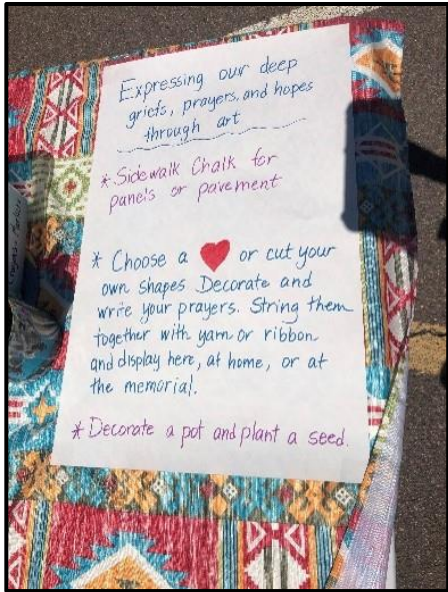 Expressing our deep
griefs, prayers, and hopes
through art
* Sidewalk Chalk for
panels or pavement
* Choose a ♥ or cut your
own shapes Decorate and
write your prayers. String them
together with yarn or ribbon
and display here, at home, or at
the memorial.
* Decorate a pot and plant a seed.